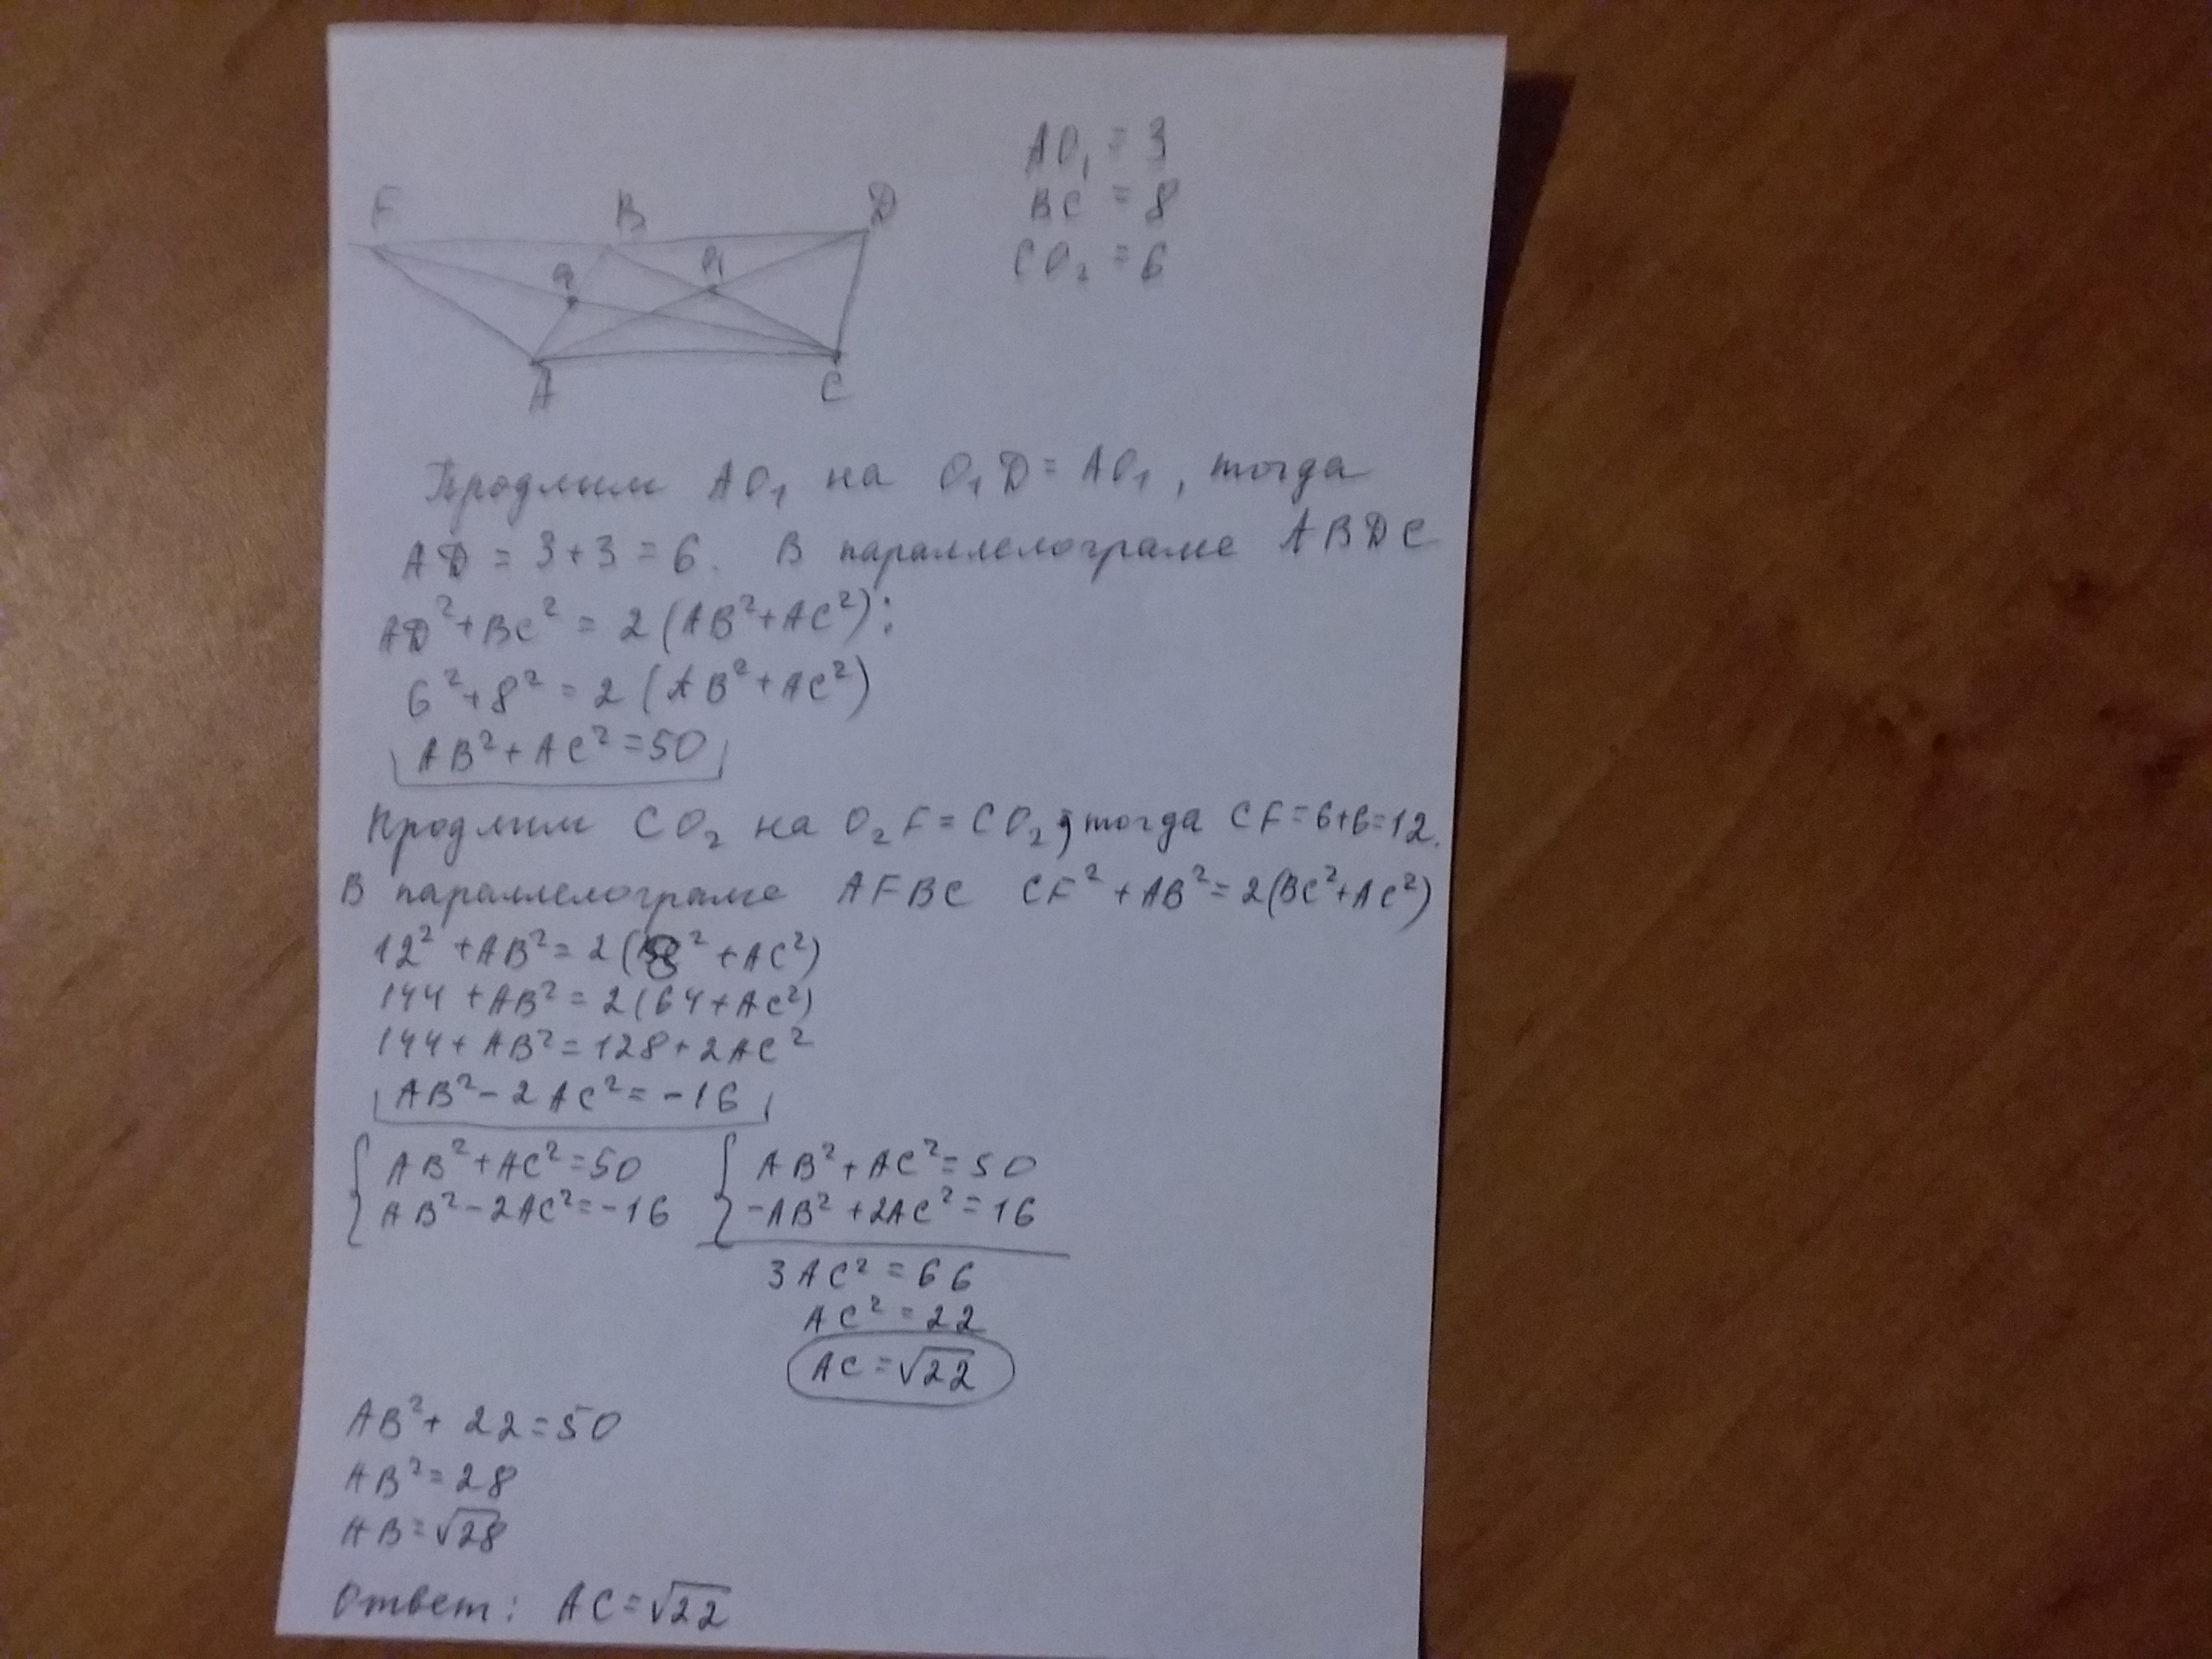 AO₁ = 3
BC = 8
CO₂ = 6
F B D
O₁
A C
Продлим AO₁ на O₁D = AO₁, тогда
AD = 3+3 = 6. В параллелограме ABDC
AD² + BC² = 2(AB² + AC²);
6² + 8² = 2(AB² + AC²)
AB² + AC² = 50
Продлим CO₂ на O₂F = CO₂, тогда CF = 6+6=12.
В параллелограме AFBC CF² + AB² = 2(BC² + AC²)
12² + AB² = 2(8² + AC²)
144 + AB² = 2(64 + AC²)
144 + AB² = 128 + 2AC²
AB² - 2AC² = -16
{ AB² + AC² = 50 { AB² + AC² = 50
AB² - 2AC² = -16 -AB² + 2AC² = 16
3AC² = 66
AC² = 22
AC = √22
AB² + 22 = 50
AB² = 28
AB = √28
Ответ: AC = √22